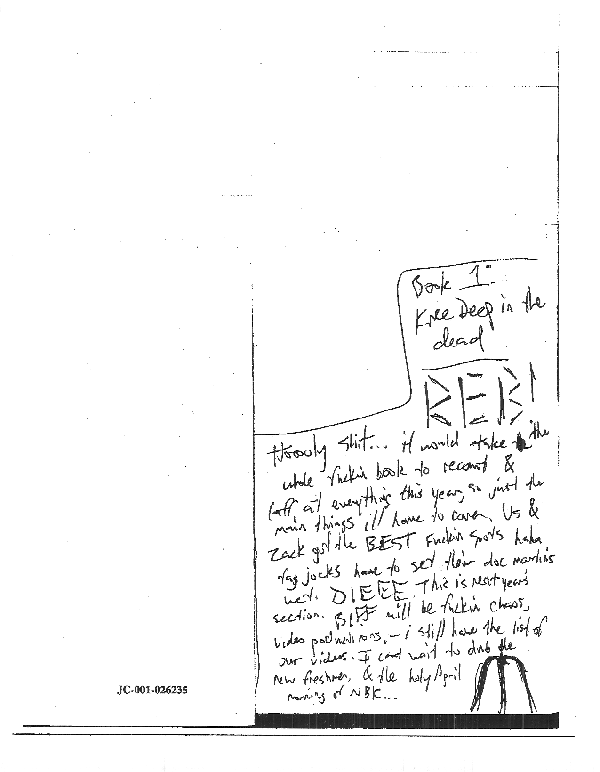 Book 1:
Knee Deep in the
dead
REB!
Hoooly Shit... it would take the
whole fuckin book to record &
laff at everything this year, so just the
main things ill have to cover. Us &
Zack got the BEST Fuckin spots haha
fag jocks have to get their doc martins
wet. DIEEE. This is next years
section. will be fuckin chaos,
video productions, - i still have the list of
our videos. I cant wait to the
new freshmen, & the holy April
morning of NBK...
JC-001-026235